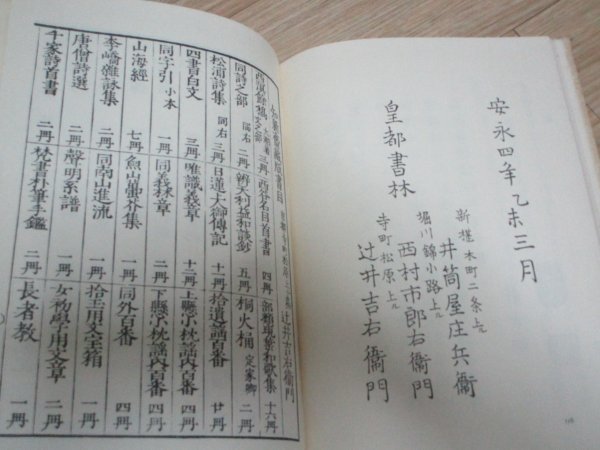 安永四年乙未三月
新椹木町二条上ル
井筒屋庄兵衞
皇都書林
堀川錦小路上ル
西村市郎右衞門
寺町松原上ル
辻井吉右衞門
辻井吉右衞門
三冊
四冊
十六冊
同詩之部
同右
二冊
五冊
桐火桶
定家卿
二冊
松浦詩集
同右
三冊
日蓮大師傳記
十一冊
拾遺謡百番
廿冊
四書白文
四冊
唯識義章
十二冊
上懸小枕謡内百番
四冊
同字引
小本
一冊
同義林章
二冊
下懸小枕謡内百番
四冊
山海經
七冊
魚山蠆芥集
一冊
同外百番
四冊
李嶠雜詠集
二冊
同南山進流
一冊
拾玉用文宝箱
一冊
唐僧詩選
二冊
聲明系譜
一冊
女初學用文章
二冊
千家詩首書
二冊
梵書朴筆手鑑
二冊
長者教
一冊